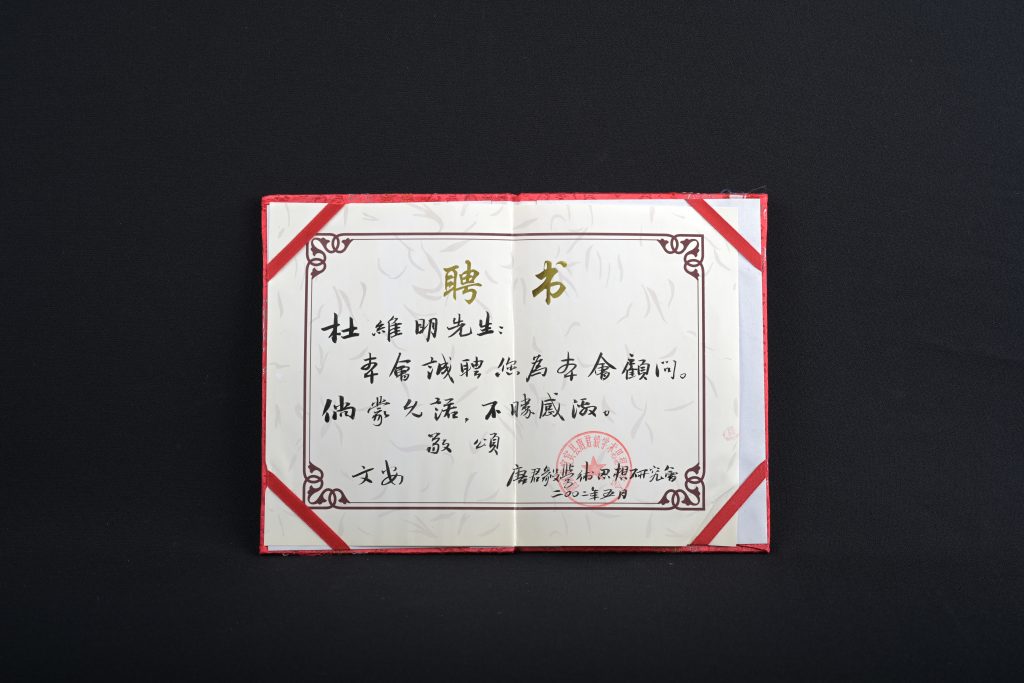 聘书
杜維明先生:
本會誠聘您為本會顧问。
倘蒙允諾,不勝感激。
敬頌
文安
唐君毅學術思想研究會
二00二年五月